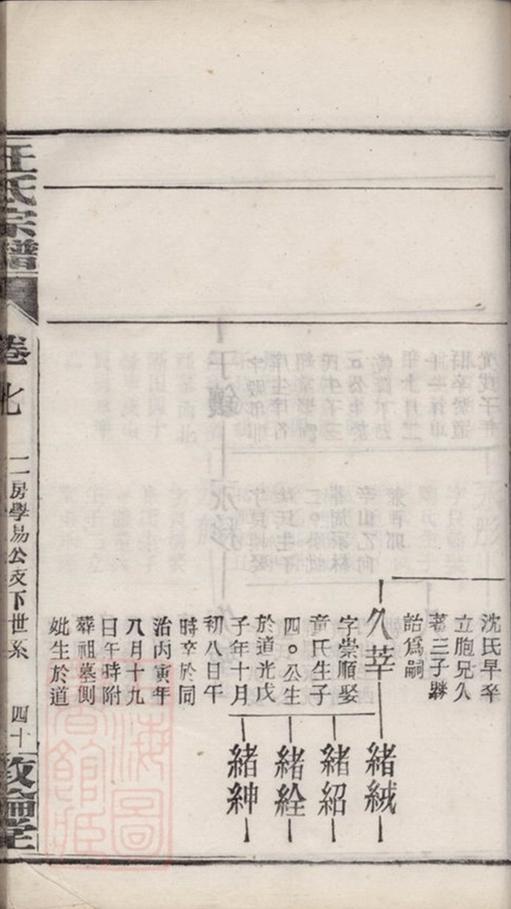 沈氏早卒
立胞兄久
著三子緒
詒爲嗣
久莘
字崇順娶
童氏生子
四○公生
於道光戊
子年十月
初八日午
時卒於同
治丙寅年
八月十九
日午時附
葬祖墓側
妣生於道
緒絨
緒紹
緒絟
緒紳
汪氏宗譜
卷七
二房學易公支下世系
四十
敦倫堂